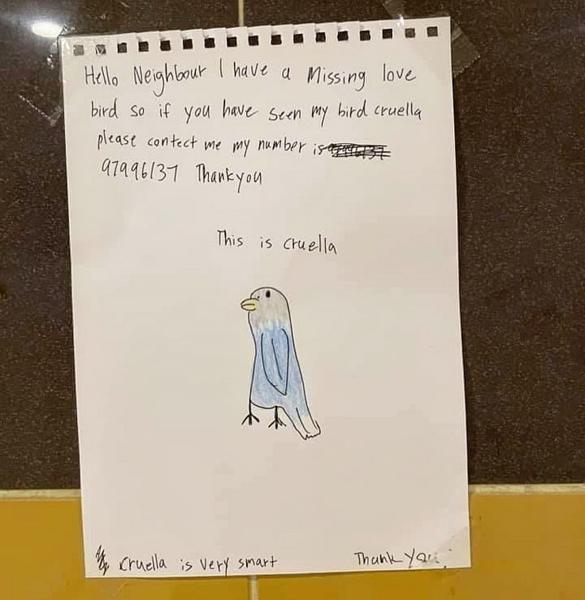 Hello Neighbour I have a Missing love
bird so if you have seen my bird cruella
please contect me my number is
97996137 Thankyou
This is cruella
Cruella is very smart
Thank You